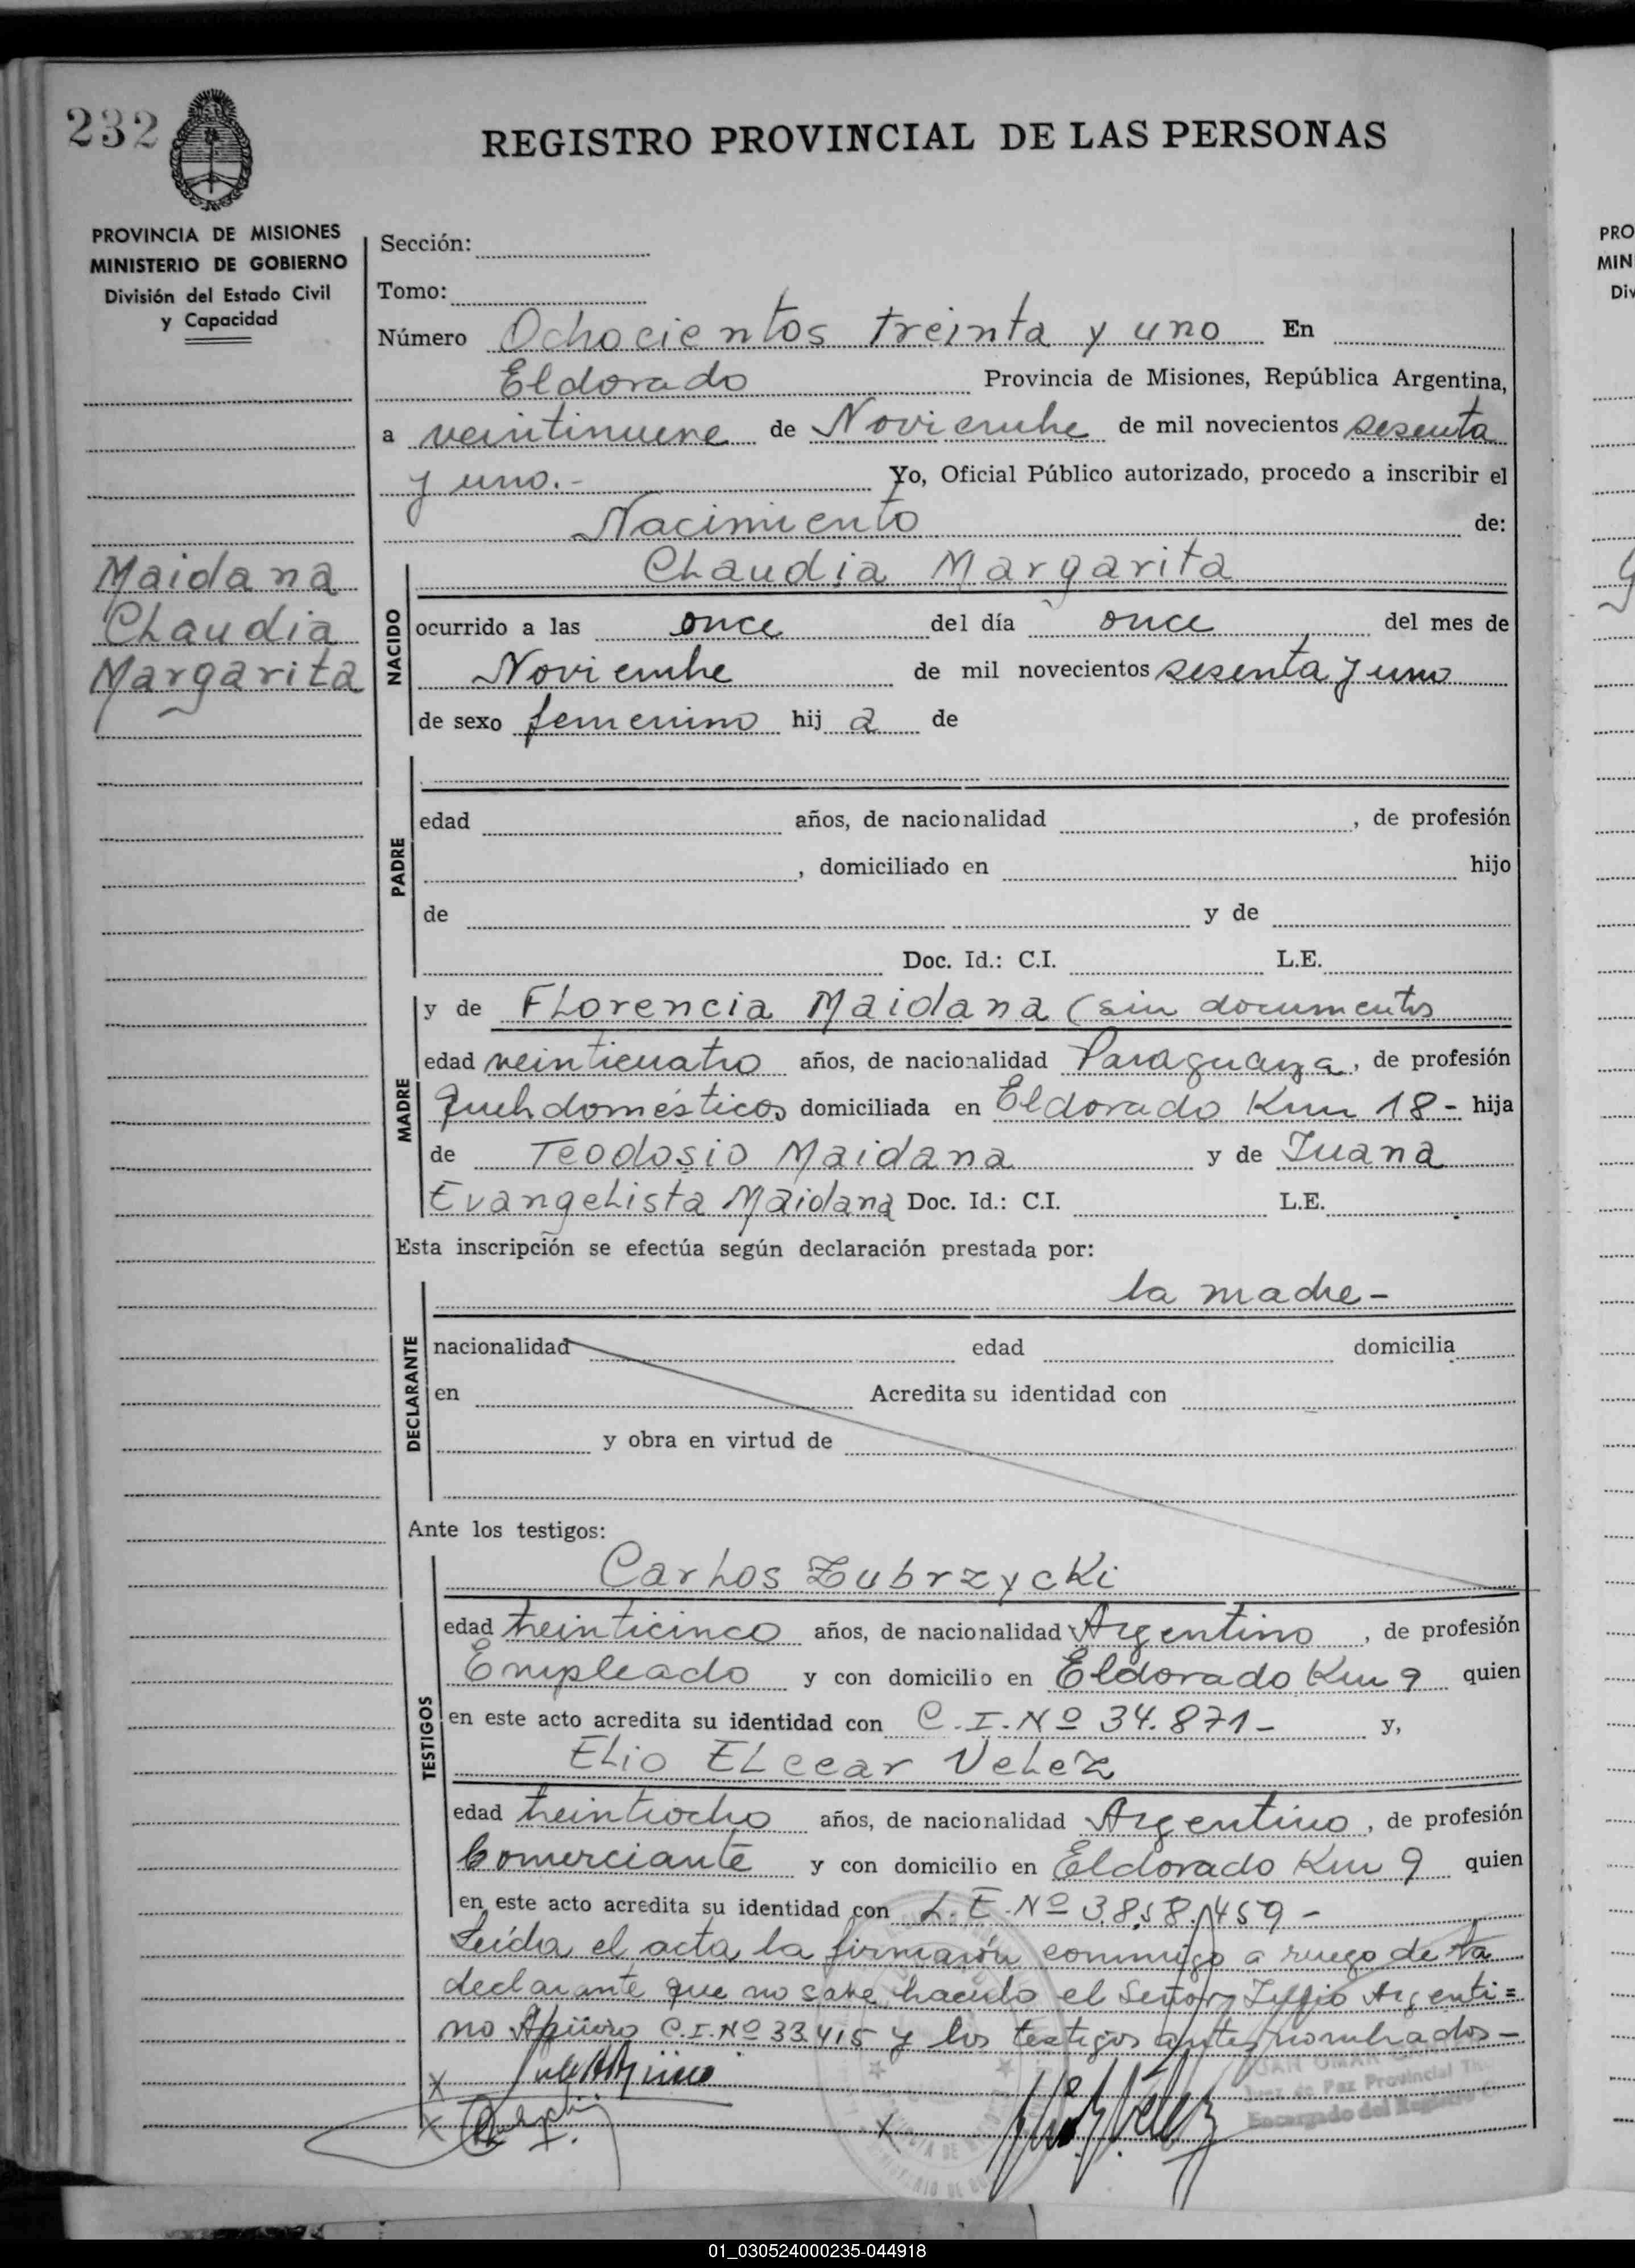 232
REGISTRO PROVINCIAL DE LAS PERSONAS
PROVINCIA DE MISIONES
MINISTERIO DE GOBIERNO
División del Estado Civil
y Capacidad
Maidana
Chaudia
Margarita
Sección:
Tomo:
Número Ochocientos treinta y uno En
Eldorado Provincia de Misiones, República Argentina,
a veintinueve de Noviembre de mil novecientos sesenta
y uno.- Yo, Oficial Público autorizado, procedo a inscribir el
Nacimiento de:
NACIDO
Chaudia Margarita
ocurrido a las once del día once del mes de
Noviembre de mil novecientos sesenta y uno
de sexo femenino hij a de
PADRE
edad años, de nacionalidad , de profesión
, domiciliado en hijo
de y de
Doc. Id.: C.I. L.E.
MADRE
y de Florencia Maidana (sin documentos
edad veinticuatro años, de nacionalidad Paraguaya, de profesión
Queh domésticos domiciliada en Eldorado Km 18 - hija
de Teodosio Maidana y de Juana
Evangelista Maidana Doc. Id.: C.I. L.E.
Esta inscripción se efectúa según declaración prestada por:
DECLARANTE
la madre -
nacionalidad edad domicilia
en Acredita su identidad con
y obra en virtud de
Ante los testigos:
TESTIGOS
Carlos Zubrzycki
edad treinticinco años, de nacionalidad Argentino, de profesión
Empleado y con domicilio en Eldorado Km 9 quien
en este acto acredita su identidad con C.I. Nº 34.871 - y,
Elio Elcear Velez
edad treintiocho años, de nacionalidad Argentino, de profesión
Comerciante y con domicilio en Eldorado Km 9 quien
en este acto acredita su identidad con L.E. Nº 3.858.459 -
Leída el acta, la firmarón conmigo a ruego de la
declarante que no sabe hacerlo el Señor Argenti=
no C.I. Nº 33.415 y los testigos antes nombrados -
x
x x
JUAN OMAR
Juez de Paz Provincial
Encargado del Registro
PRO
MIN
Div
01_030524000235-044918